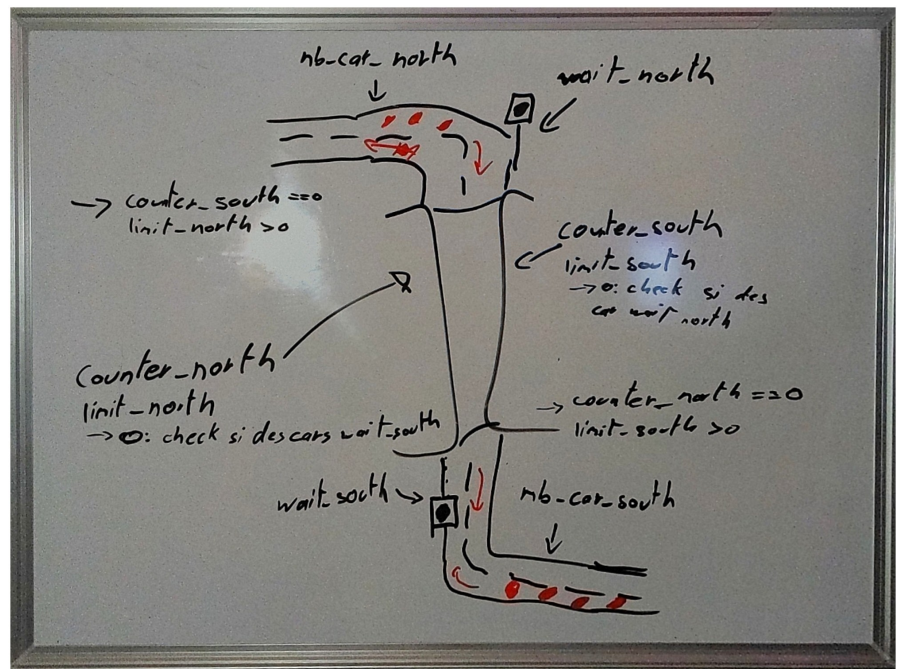 nb_car_north
wait_north
→ counter_south ==0
limit_north >0
counter_south
limit_south
→0: check si des
car wait north
counter_north
limit_north
→ 0: check si des cars wait_south
→ counter_north ==0
limit_south >0
wait_south
nb_car_south